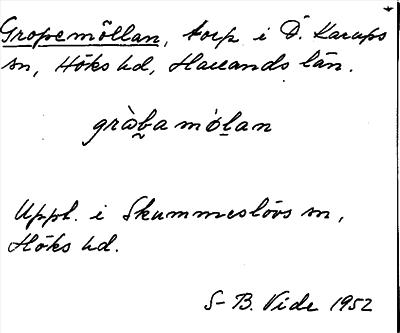 Gropemöllan, torp i Ö. Karups
sn, Höks hd, Hallands län.
gràb̬a mó̀l̠an
Uppt. i Skummeslövs sn,
Höks hd.
S-B. Vide 1952